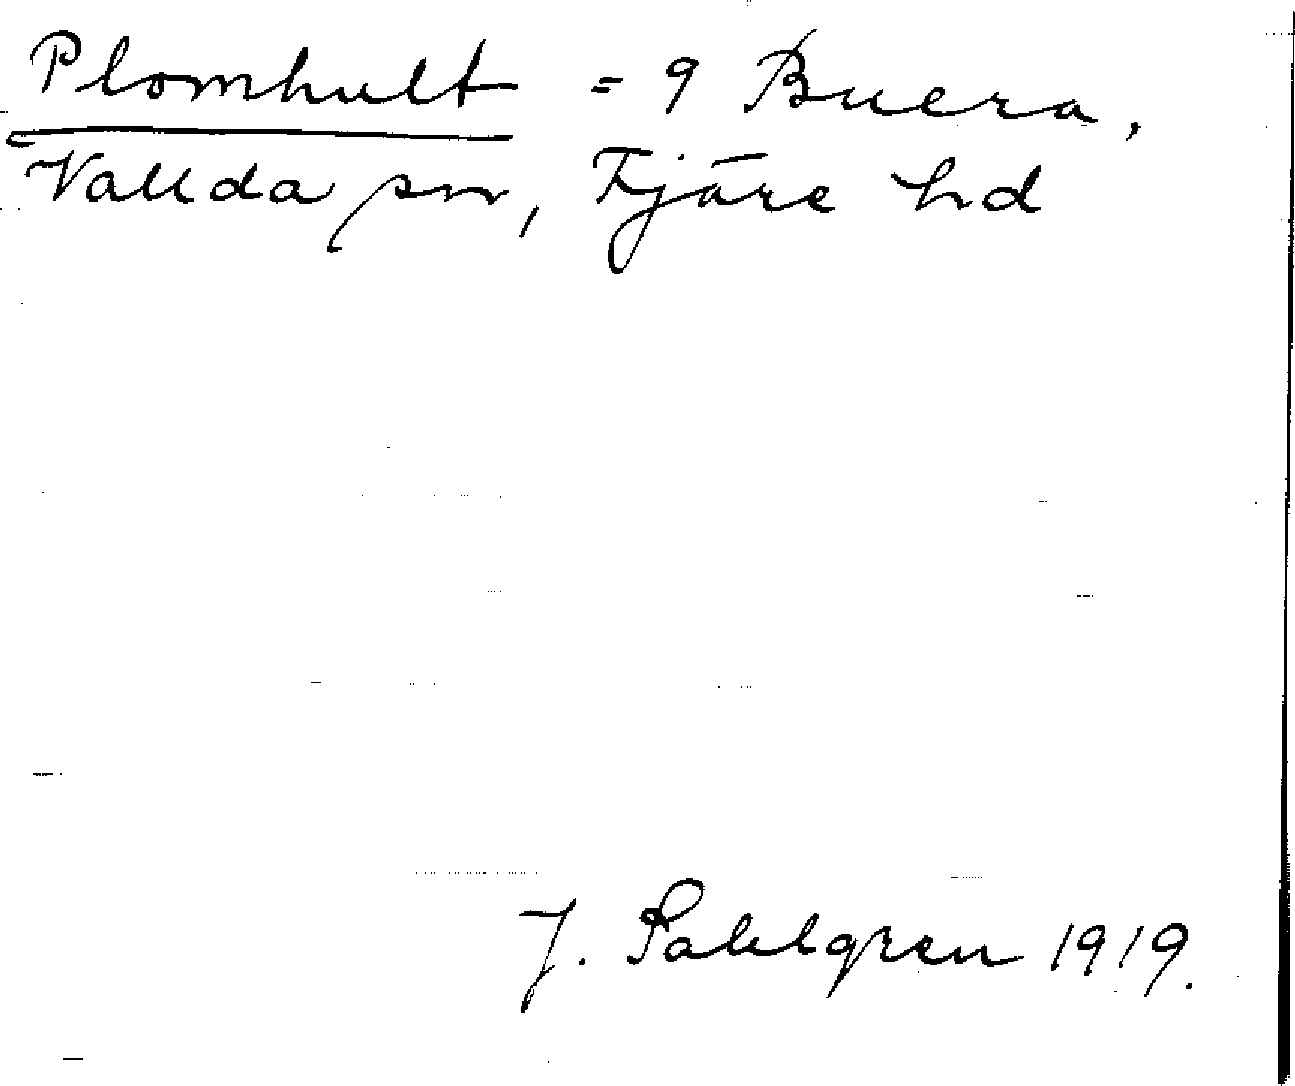 Plomhult = 9 Buera,
Vallda sn, Fjäre hd
J. Sahlgren 1919.